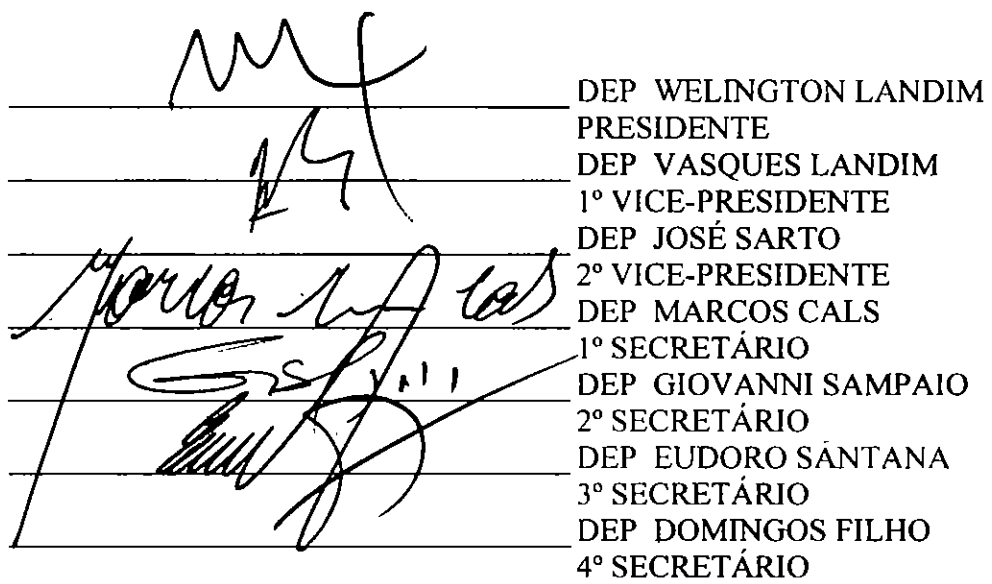 DEP WELINGTON LANDIM
PRESIDENTE
DEP VASQUES LANDIM
1º VICE-PRESIDENTE
DEP JOSÉ SARTO
2º VICE-PRESIDENTE
DEP MARCOS CALS
1º SECRETÁRIO
DEP GIOVANNI SAMPAIO
2º SECRETÁRIO
DEP EUDORO SÁNTANA
3º SECRETÁRIO
DEP DOMINGOS FILHO
4º SECRETÁRIO